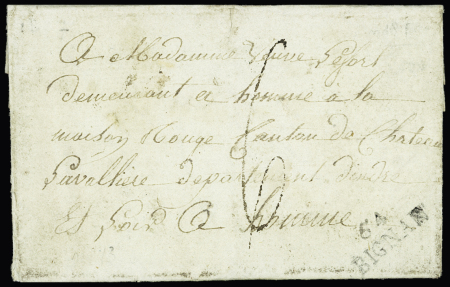 A Madamme veuve Lefort
demeurant a homme a la
maison Rouge Canton de Chateau
Lavalliere departement d'indre
Et Loire A homme
6
64
BIGNAN